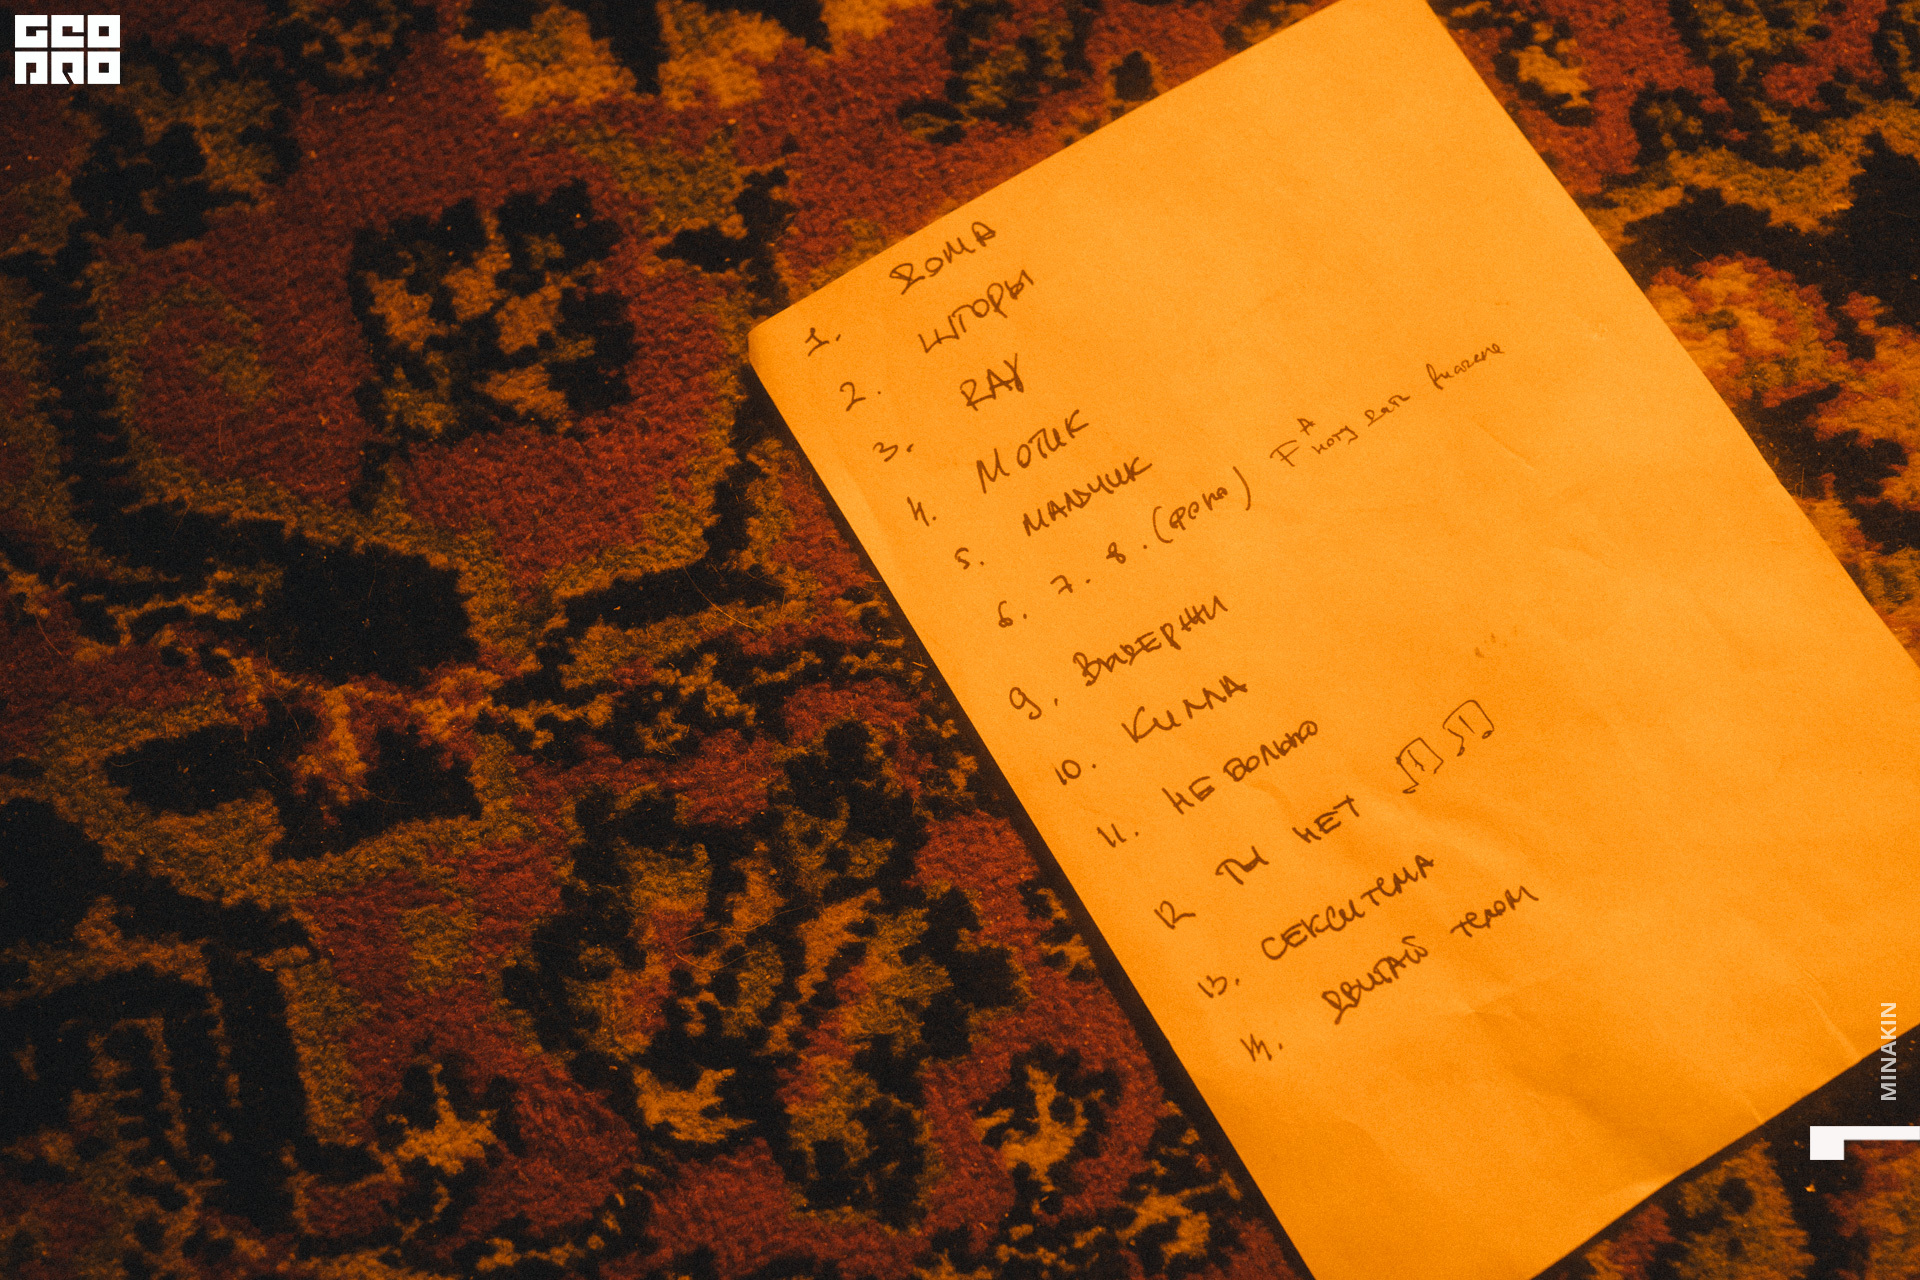 GEO
PRO
1. ДОМА
2. ШТОРЫ
3. RAY
4. МОТИК
5. МАЛЬЧИК
6. 7. 8. (фона) F A ноту дать
9. ВЫДЕРЖИ
10. КИЛЛА
11. НЕ БОЛЬНО
12 ТЫ НЕТ
13. СЕКСИ ТЕМА
14. ДВИГАЙ ТЕЛОМ
MINAKIN